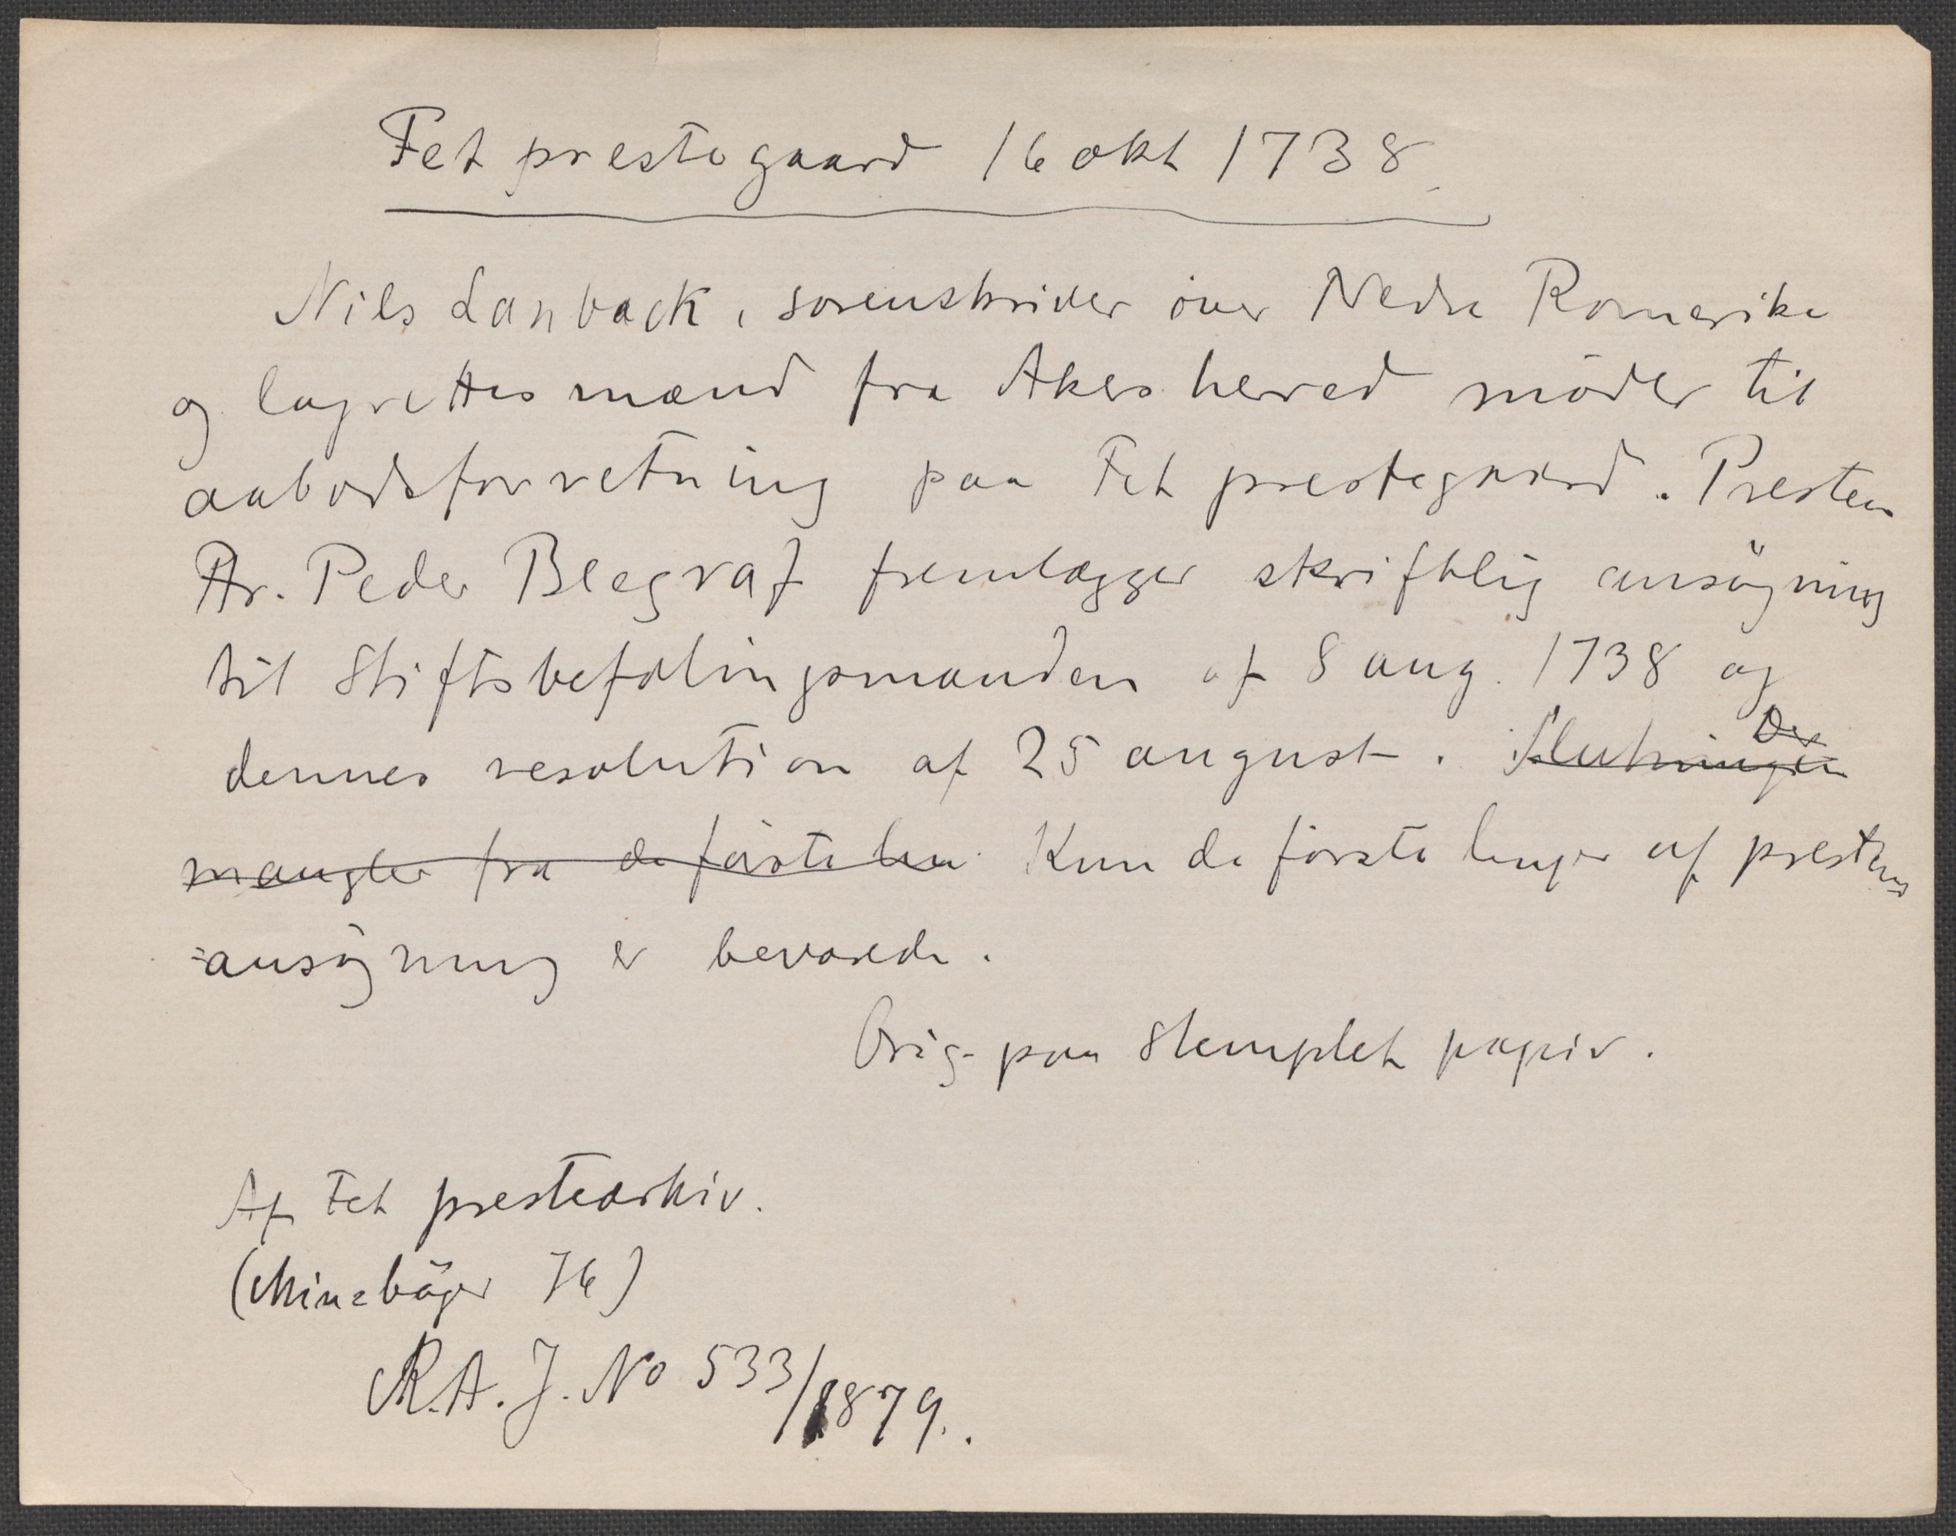 Fet prestegaard 16 okt 1738.
Nils Lasback, sorenskriver over Nedre Romerike
og lagrettesmænd fra Akersherred møder til
aabodsforretning paa Fet prestegaard. Presten
Hr. Peder Blegraf fremlægger skriftlig ansøgning
til Stiftsbefalingsmanden af 8 aug. 1738 og
dennes resolution af 25 august. Slutningen
mangler fra de første Kun de første linjer af prestens
ansøgning er bevarede.
Orig. paa stemplet papir.
Af Fet prestearkiv.
(Minebøger 76)
R.A. J. No 533/1879.